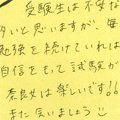 受験生は不安な
多いと思いますが、毎
勉強を続けていれば
自信をもって試験が
奈良女は楽しいです!!
また会いましょう